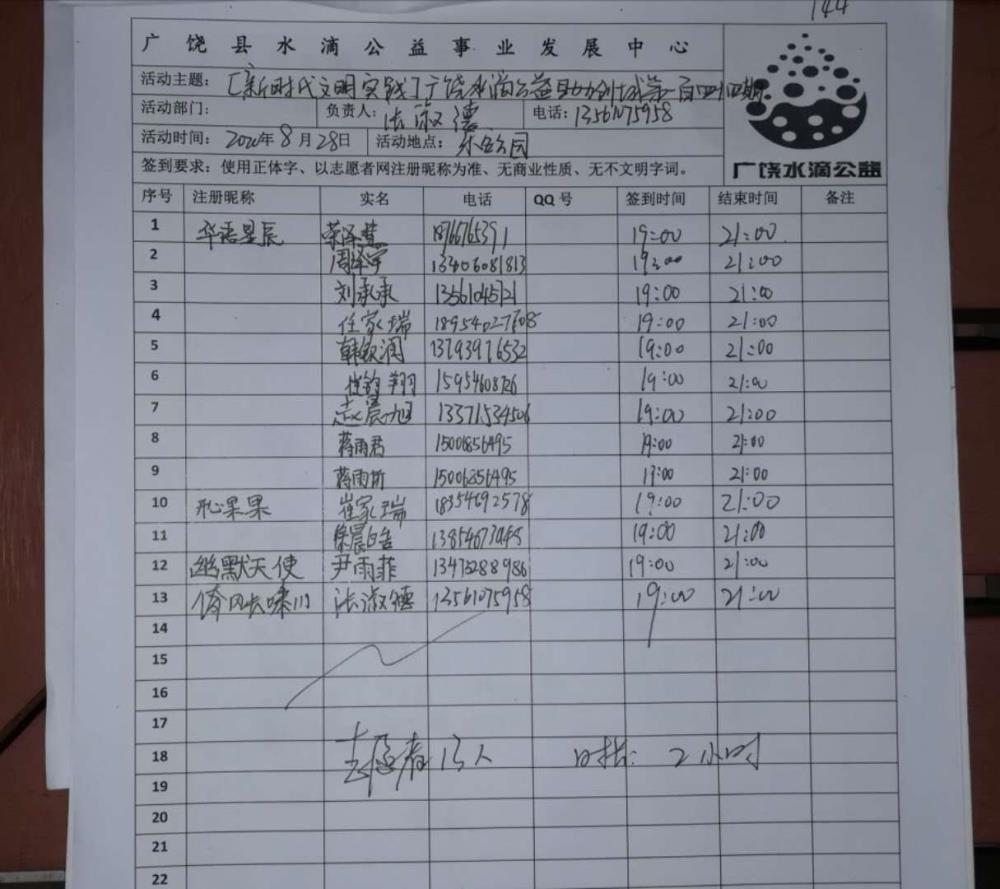 144
广饶县水滴公益事业发展中心
活动主题：【新时代文明实践】广饶水滴公益 第一百四四期
活动部门： 负责人： 淑德 电话：13561075958
活动时间： 2020年8月28日 活动地点： 乐安公园
签到要求：使用正体字、以志愿者网注册昵称为准、无商业性质、无不文明字词。
广饶水滴公益
序号 注册昵称 实名 电话 QQ号 签到时间 结束时间 备注
1 华语星辰 荣泽慧 19:00 21:00
2 周泽宇 13406081813 19:00 21:00
3 刘承承 13561045721 19:00 21:00
4 任家瑞 19:00 21:00
5 韩毅润 13793976532 19:00 21:00
6 崔钧翔 19:00 21:00
7 晨旭 13371534506 19:00 21:00
8 蒋雨君 15006856495 19:00 21:00
9 蒋雨昕 15006856495 19:00 21:00
10 邢果果 崔家瑞 18354692578 19:00 21:00
11 晨皓 19:00 21:00
12 幽默天使 尹雨菲 13473288986 19:00 21:00
13 淑德 13561075958 19:00 21:00
14
15
16
17
18 志愿者13人 时长：2小时
19
20
21
22